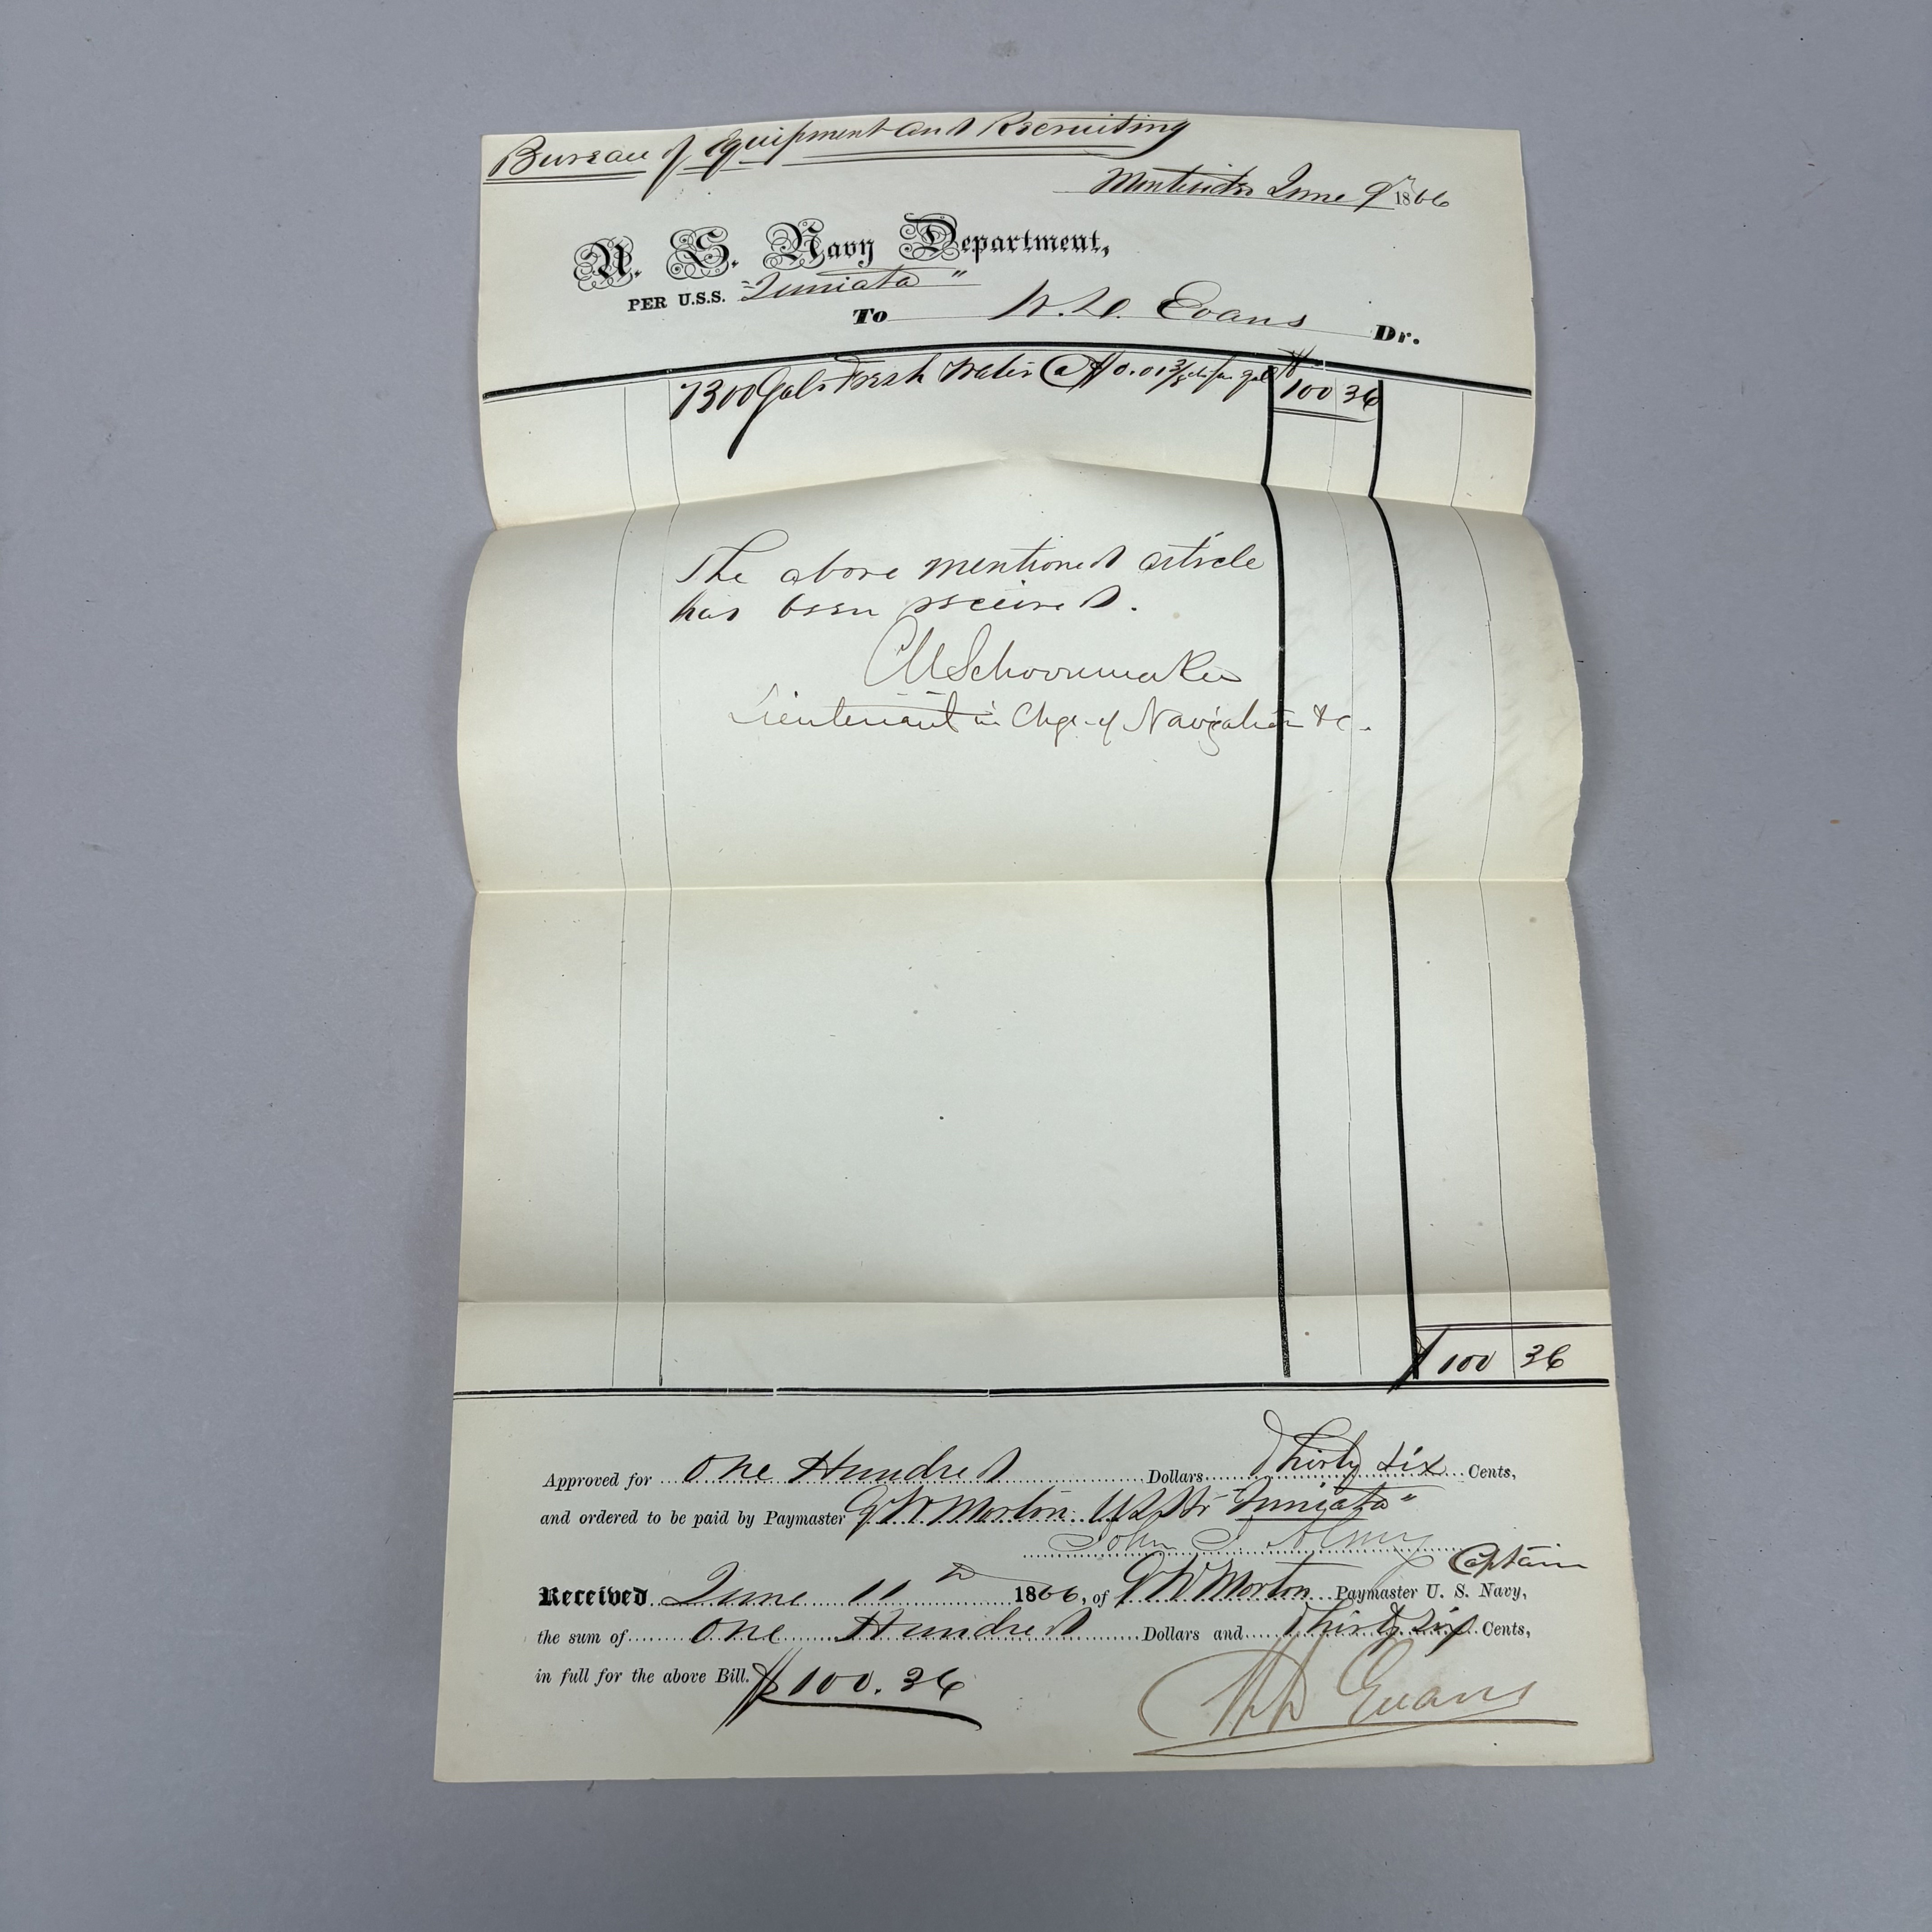 Bureau of Equipment and Recruiting
Montevideo June 9th 1866
U. S. Navy Department,
PER U.S.S. "Juniata"
To W. D. Evans Dr.
7300 Gals Fresh Water @ $0.01 3/8 per gal $ 100 36
The above mentioned article
has been received.
CM Schoonmaker
Lieutenant in Chge. of Navigation &c.
$ 100 36
Approved for One Hundred Dollars Thirty six Cents,
and ordered to be paid by Paymaster G W Morton USStr "Juniata"
John J. Almy Captain
Received June 11th 1866, of G W Morton Paymaster U. S. Navy,
the sum of One Hundred Dollars and Thirty six Cents,
in full for the above Bill. $100.36
W D Evans